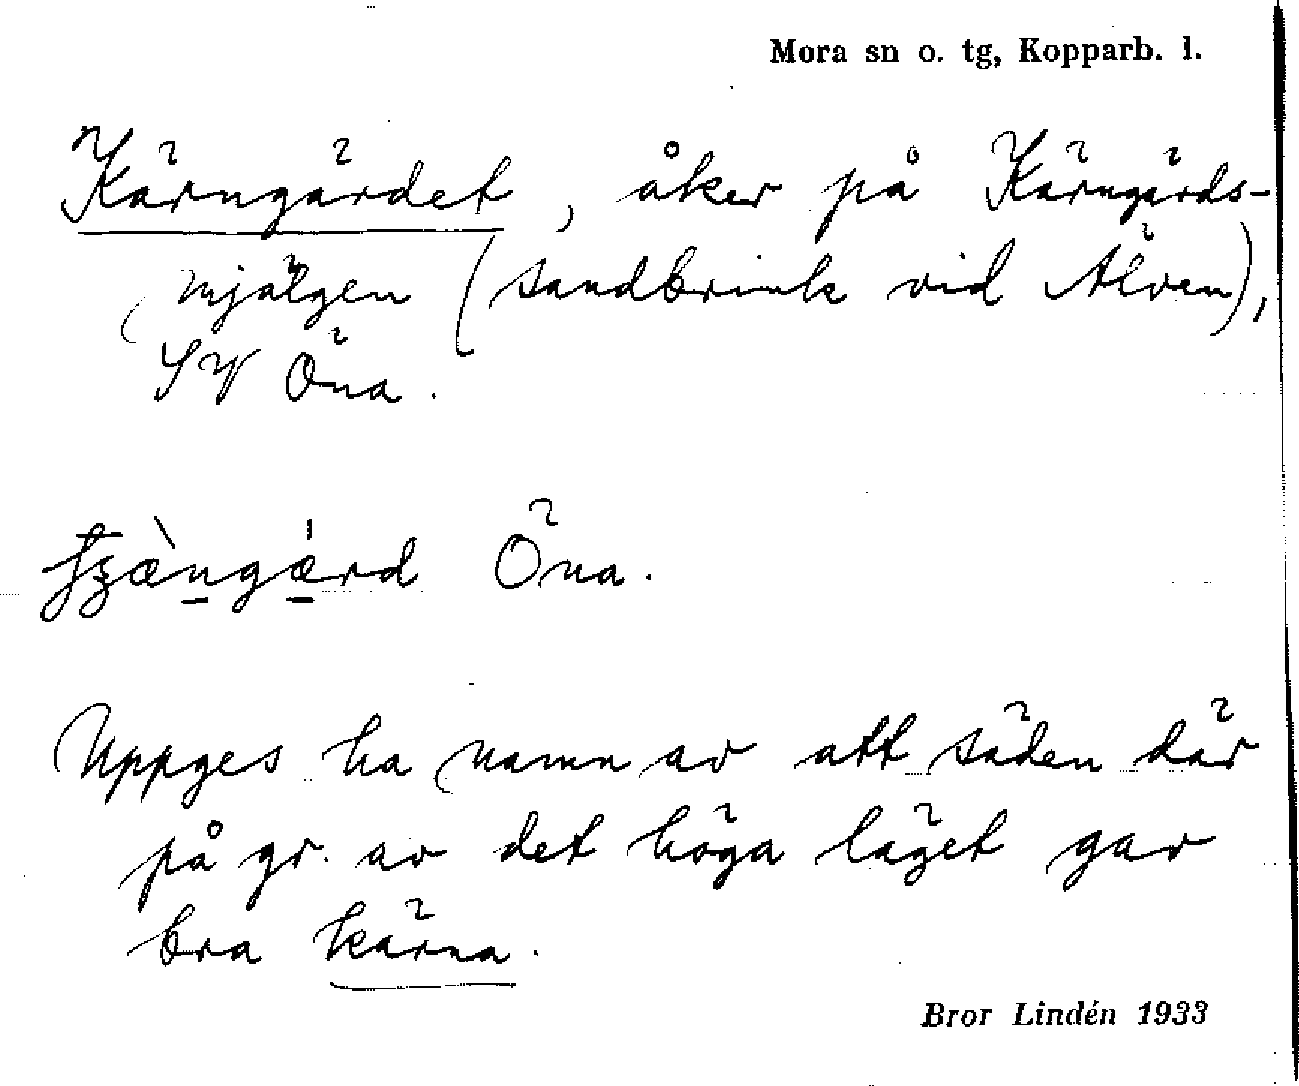 Mora sn o. tg, Kopparb. l.
Kärngärdet, åker på Kärngärds-
mjälgen (sandbrink vid Älven),
SV Öna.
Öna.
Uppges ha namn av att säden där
på gr. av det höga läget gav
bra kärna.
Bror Lindén 1933